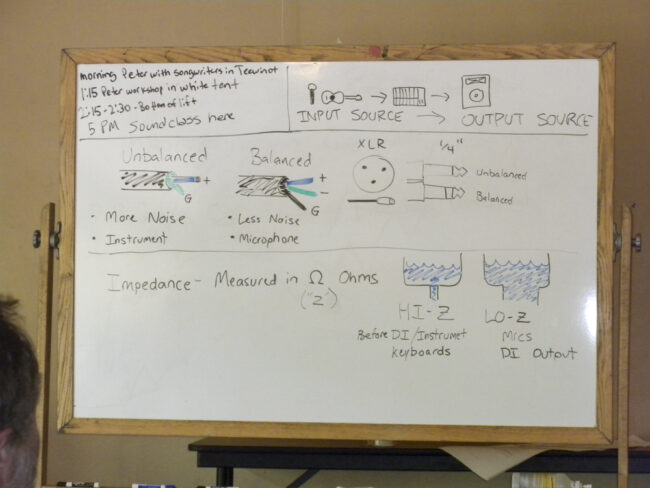 morning Peter with songwriters in Teewinot
1:15 Peter workshop in white tent
2:15-2:30 - Bottom of lift
5 PM Soundclass here
INPUT SOURCE → OUTPUT SOURCE
Unbalanced
+
G
• More Noise
• Instrument
Balanced
+
-
G
• Less Noise
• Microphone
XLR
1/4"
Unbalanced
Balanced
Impedance - Measured in Ω Ohms
("Z")
HI-Z
Before DI/Instrumet
Keyboards
LO-Z
Mics
DI Output